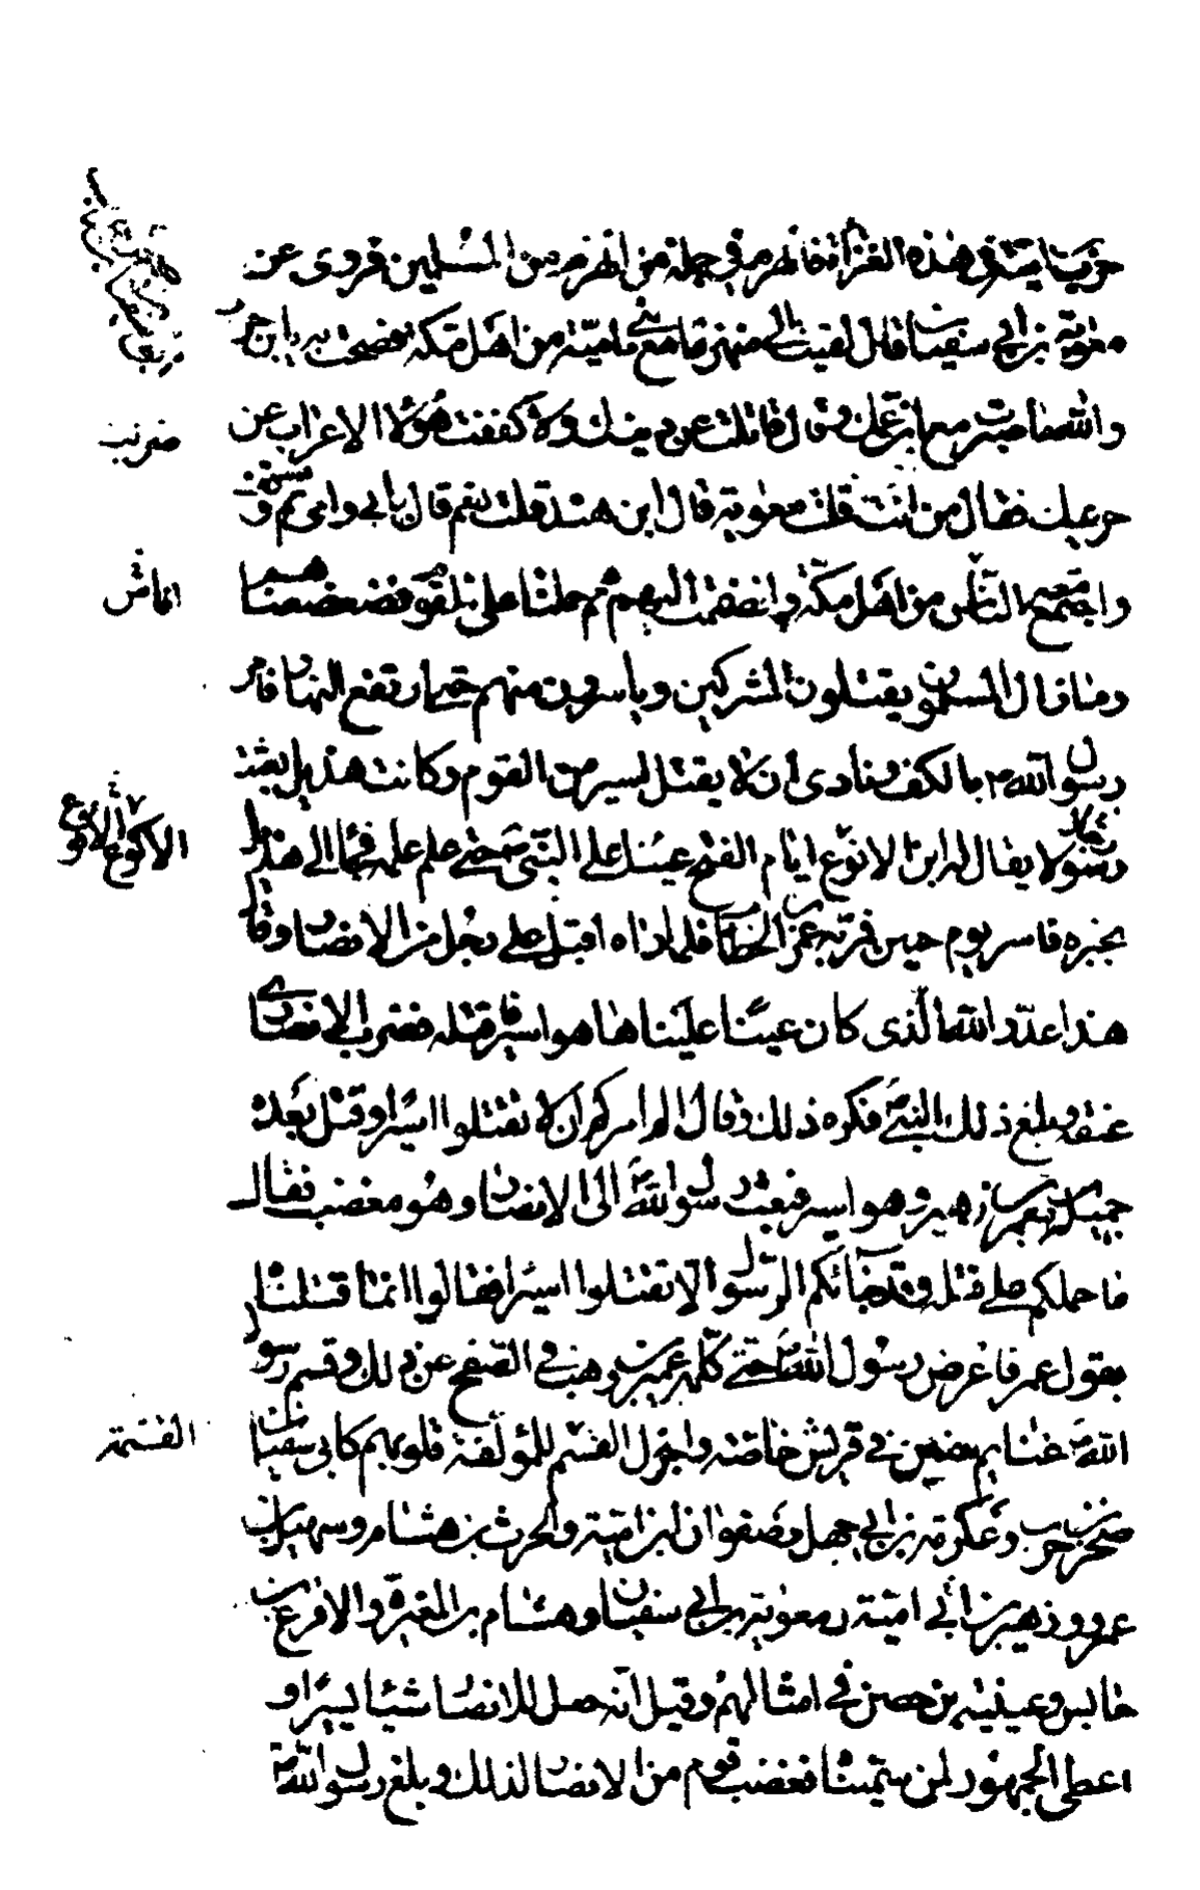 حرب بن امية في هذه الغزاة فانهزم في جملة من انهزم من المسلمين فروى عن
معوية بن ابي سفيان قال لقيت ابي منهزما معه بنو امية من اهل مكة فصحت به يابن حرب
والله ما صبرت مع ابن عمك ولا قاتلت عن دينك ولا كففت هؤلاء الاعراب عن
حريمك فقال من انت قلت معوية قال ابن هند قلت نعم قال بابي وامي ثم وقف
واجتمع معه الناس من اهل مكة وانضممت اليهم ثم حملنا على القوم فضعضعناهم
وما زال المسلمون يقتلون المشركين وياسرون منهم حتى ارتفع النهار فامر
رسول الله ص بالكف ونادى ان لا يقتل اسير من القوم وكانت هذيل بعثت
رسولا يقال له ابن الانوع ايام الفتح عينا على النبي ص حتى علم علمه فجاء الى هذيل
بخبره فاسر يوم حنين فمر به عمر بن الخطاب فلما راه اقبل على رجل من الانصار وقال
هذا عدو الله الذي كان عينا علينا ها هو اسير فاقتله فضرب الانصاري
عنقه وبلغ ذلك النبي ص فكره ذلك وقال الم امركم ان لا تقتلوا اسيرا وقتل بعده
جميل بن معمر بن زهير وهو اسير فبعث رسول الله ص الى الانصار وهو مغضب فقال
ما حملكم على قتله وقد جائكم الرسول الا تقتلوا اسيرا فقالوا انما قتلناه
بقول عمر فاعرض رسول الله ص حتى كلمه عمير بن وهب في الصفح عن ذلك وقسم رسول
الله ص غنايم حنين في قريش خاصة واجزل القسم للمؤلفة قلوبهم كابي سفيان
صخر بن حرب وعكرمة بن ابي جهل وصفوان بن امية والحرث بن هشام وسهيل بن
عمرو وزهير بن ابي امية ومعوية بن ابي سفيان وهشام بن المغيرة والاقرع بن
حابس وعيينة بن حصن في امثالهم وقيل انه جعل للانصار شيئا يسيرا و
اعطى الجمهور لمن سميناه فغضب قوم من الانصار لذلك وبلغ رسول الله ص
ضربت
الاكوع الاقرع
القسمة